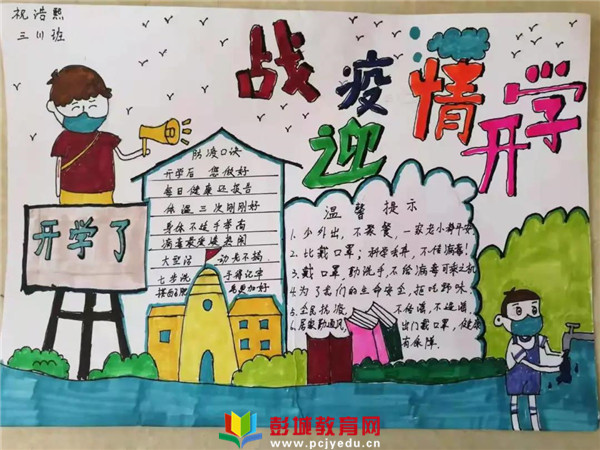 祝浩熙
三川班
战疫情
迎开学
防疫口诀
开学后 您做好
每日健康还报告
体温三次刚刚好
身体不适手举高
滴毒最爱凑热闹
大型活 动老不搞
七步洗 手得记牢
开学了
温馨提示
1. 少外出,不聚餐,一家老小都平安
2. 比戴口罩;科学点丢弃,不传病毒!
3. 戴口罩勤洗手,不给病毒可乘之机
4. 为了我们的生命安全,拒吃野味
5. 全民抗疫, 不信谣,不造谣,
6. 居家勤通风 出门戴口罩,健康
有保障.
彭城教育网
www.pcjyedu.cn